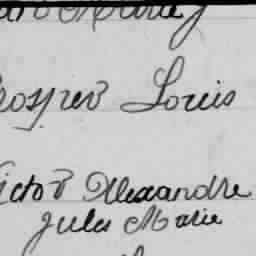 Marie
Prosper Louis
Victor Alexandre
Jules Marie